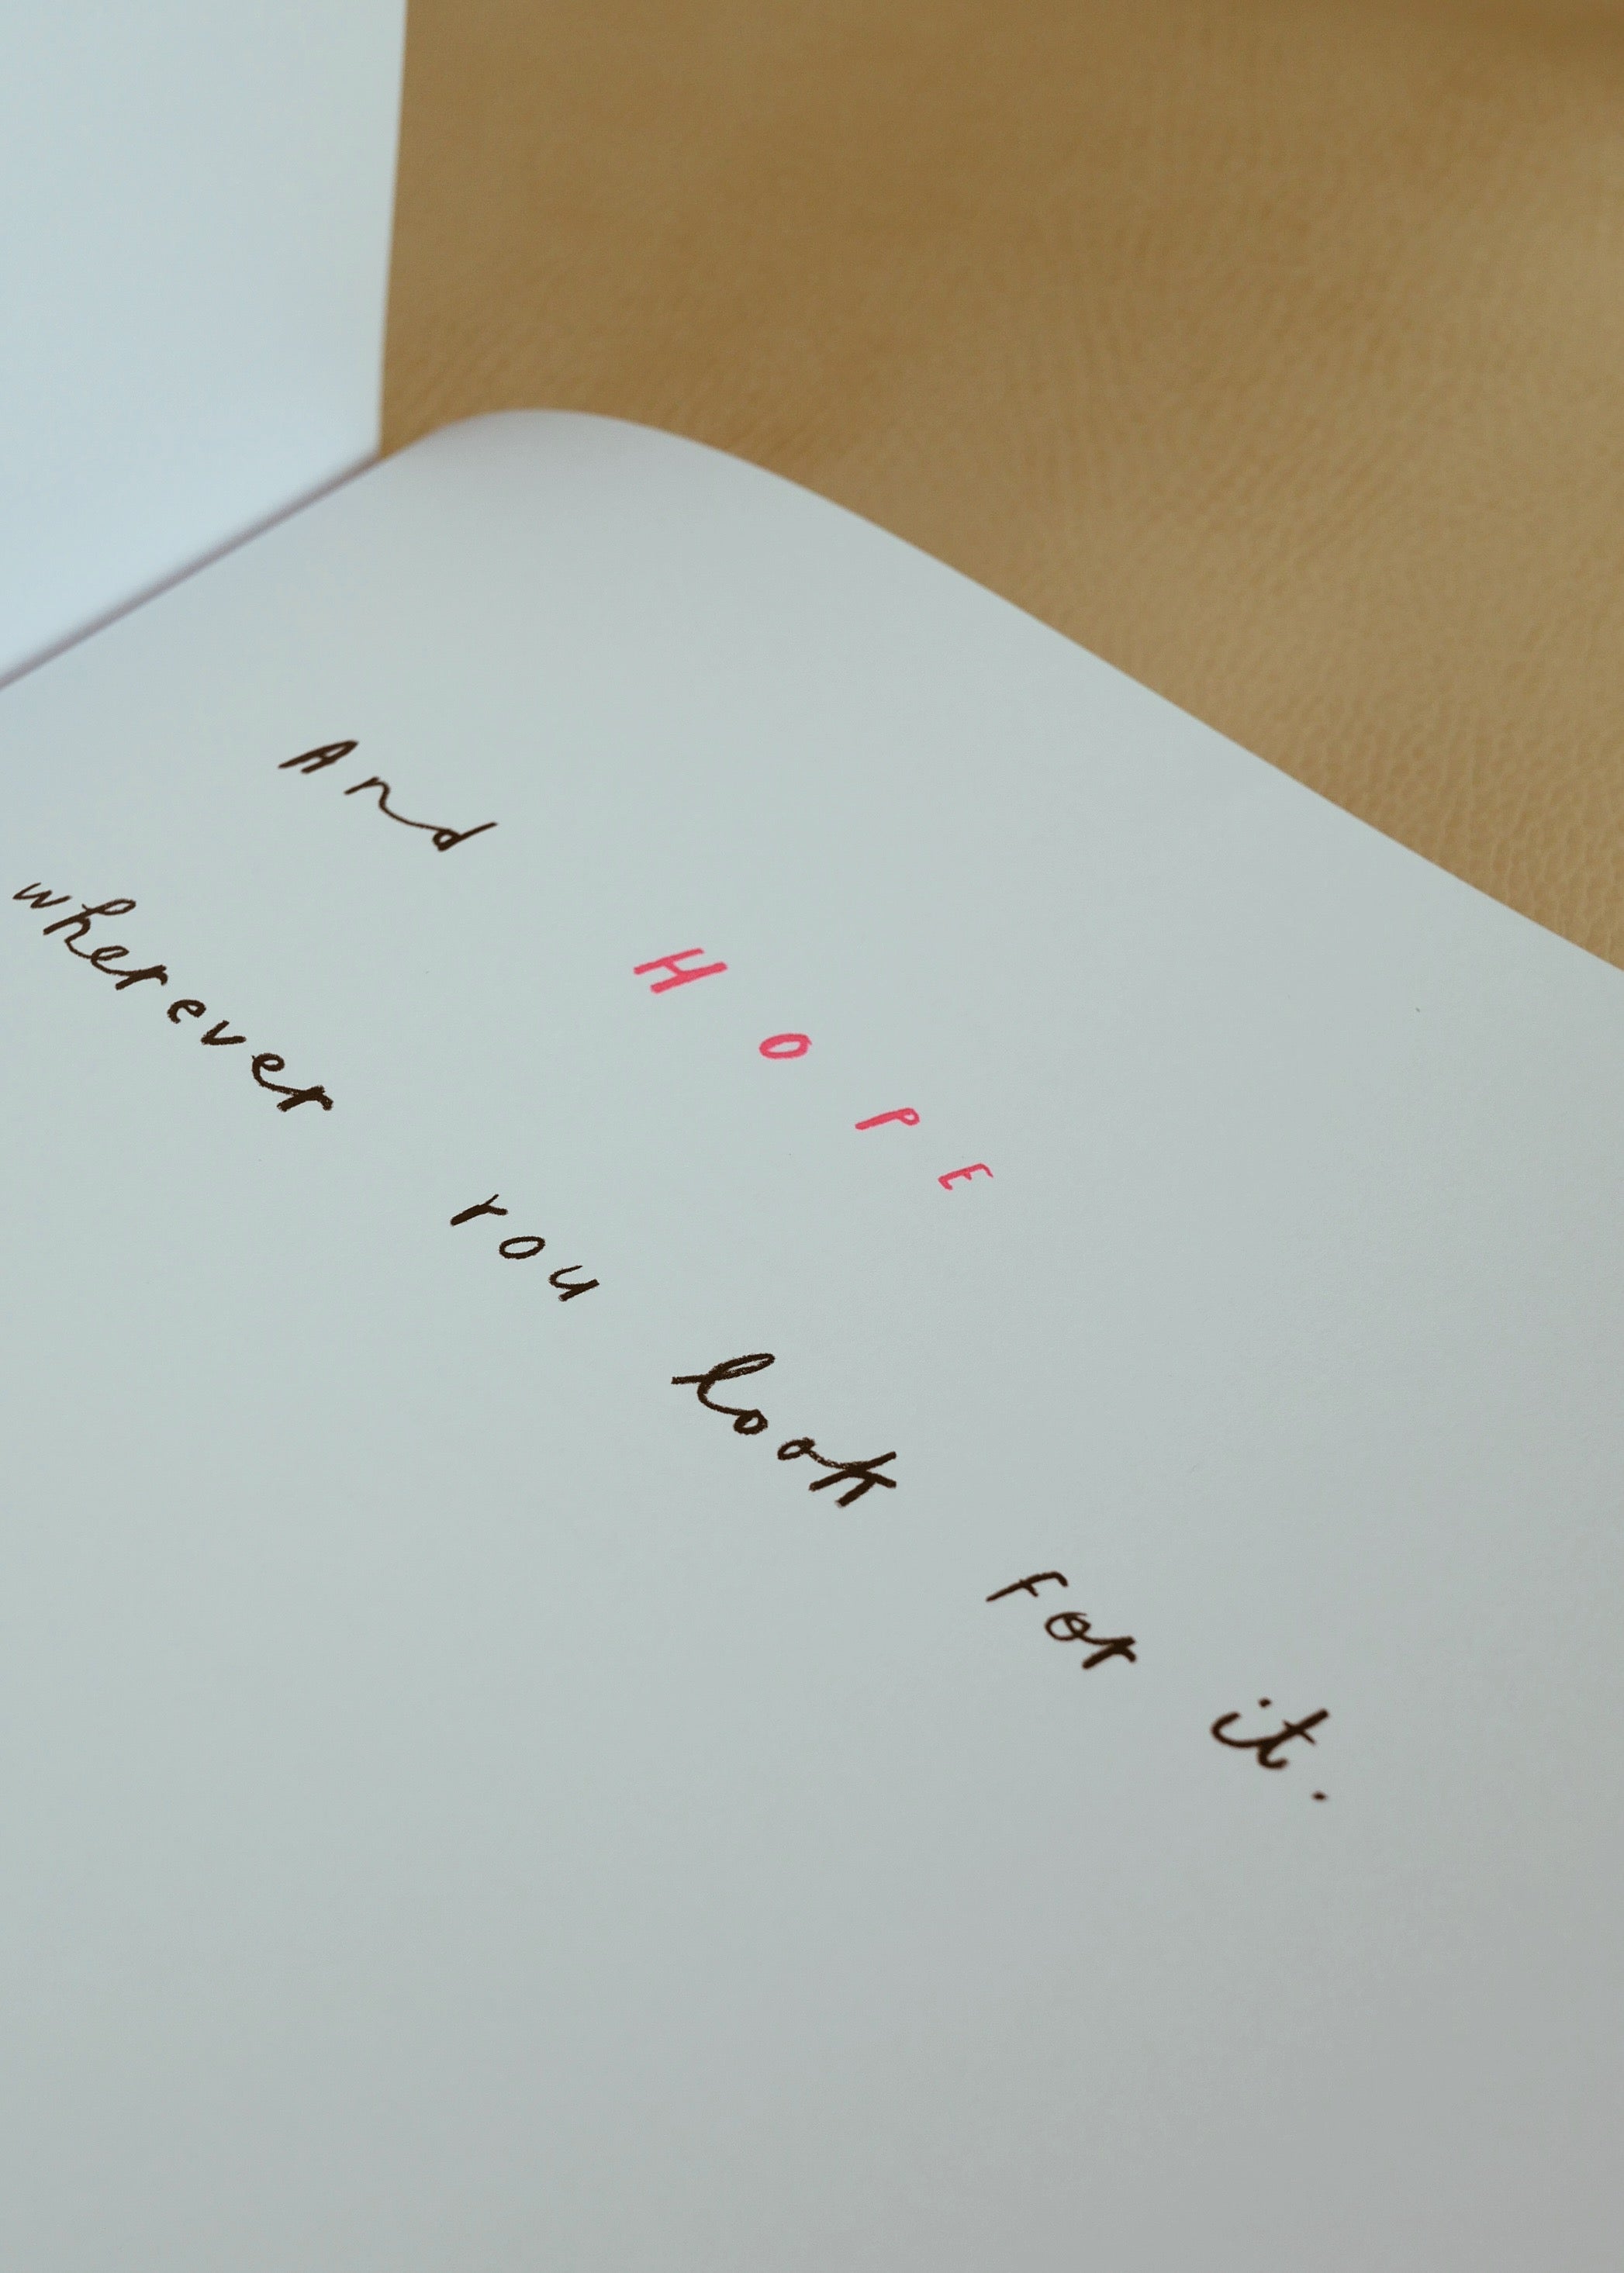 And HOPE
wherever you look for it.